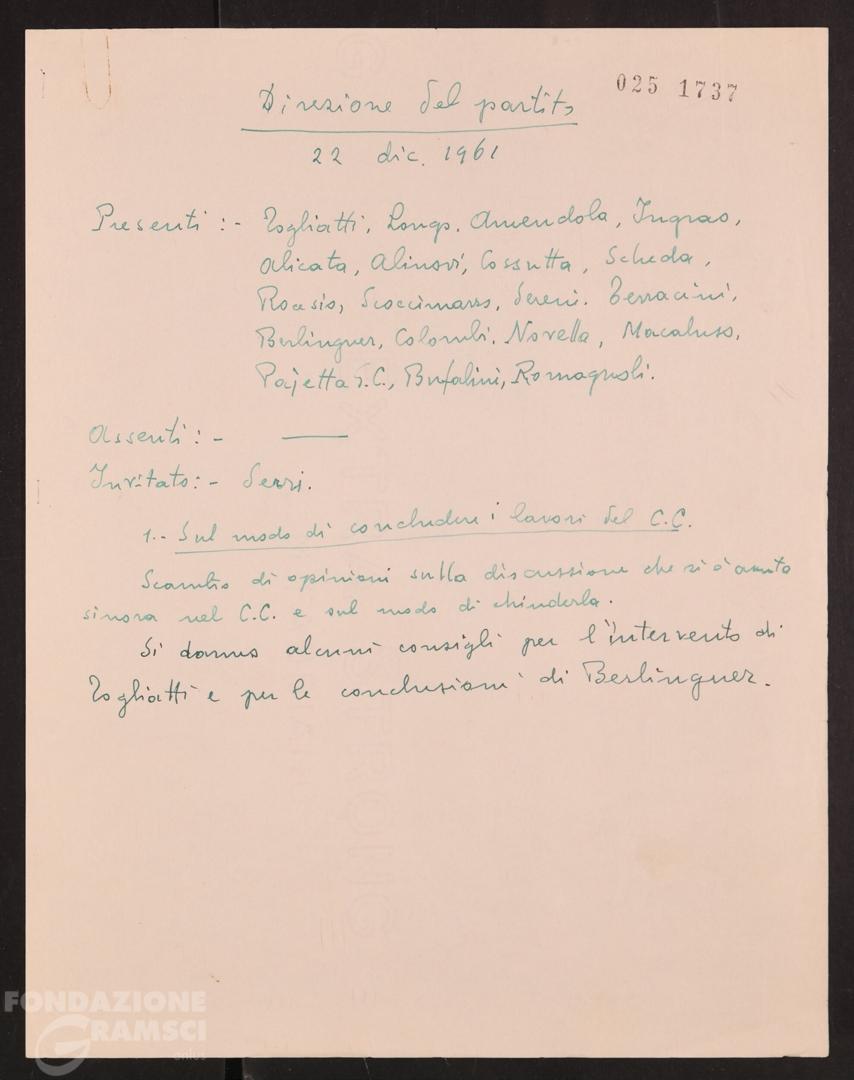 025 1737
Direzione del partito
22 dic. 1961
Presenti :- Togliatti, Longo, Amendola, Ingrao,
Alicata, Alinovi, Cossutta, Scheda,
Roasio, Scoccimarro, Sereni, Terracini,
Berlinguer, Colombi, Novella, Macaluso,
Pajetta G.C., Bufalini, Romagnoli.
Assenti :- ———
Invitato :- Serri.
1.- Sul modo di concludere i lavori del C.C.
Scambio di opinioni sulla discussione che si è avuta
sinora nel C.C. e sul modo di chiuderla.
Si danno alcuni consigli per l'intervento di
Togliatti e per le conclusioni di Berlinguer.
FONDAZIONE
GRAMSCI
onlus